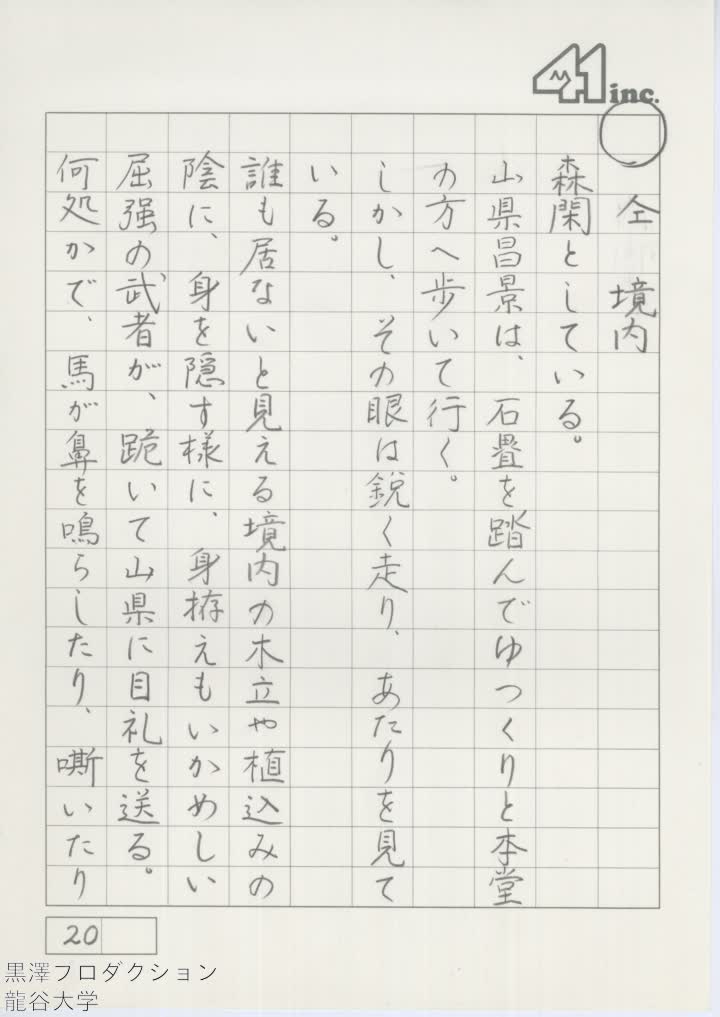 41 inc.
○ 仝 境内
森閑としている。
山県昌景は、石畳を踏んでゆっくりと本堂
の方へ歩いて行く。
しかし、その眼は鋭く走り、あたりを見て
いる。
誰も居ないと見える境内の木立や植込みの
陰に、身を隠す様に、身拵えもいかめしい
屈强の武者が、跪いて山県に目礼を送る。
何処かで、馬が鼻を鳴らしたり、嘶いたり
20
黒澤プロダクション
龍谷大学